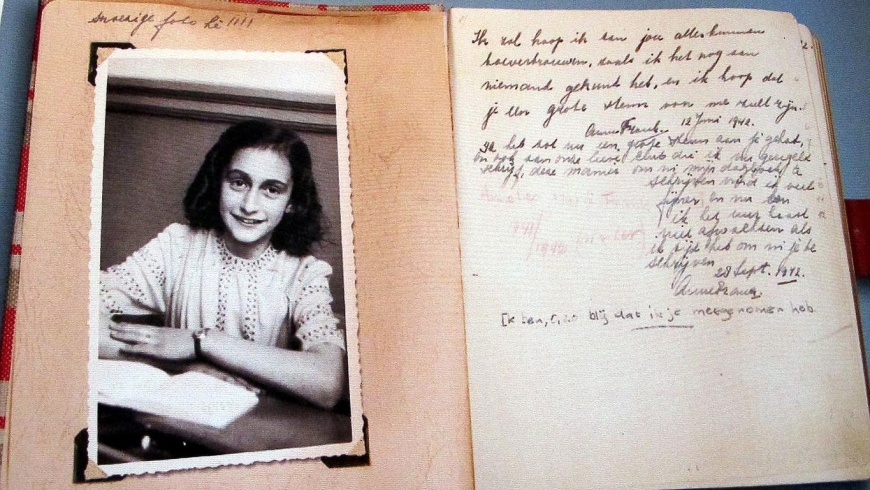 snoezige foto hè !!!!
Ik zal hoop ik aan jou alles kunnen
toevertrouwen, zoals ik het nog aan
niemand gekund heb, en ik hoop dat
je een grote steun voor me zult zijn.
Anne Frank. 12 Juni 1942.
Ik heb tot nu een grote steun aan je gehad,
en ook aan onze lieve club die ik nu geregeld
schrijf, deze manier om in mijn dagboek te
schrijven vind ik veel
fijner en nu kan
ik het uur haast
niet afwachten als
ik tijd heb om in je te
schrijven.
28 Sept. 1942.
Anne Frank.
Ik ben, o, zo blij dat ik je meegenomen heb.